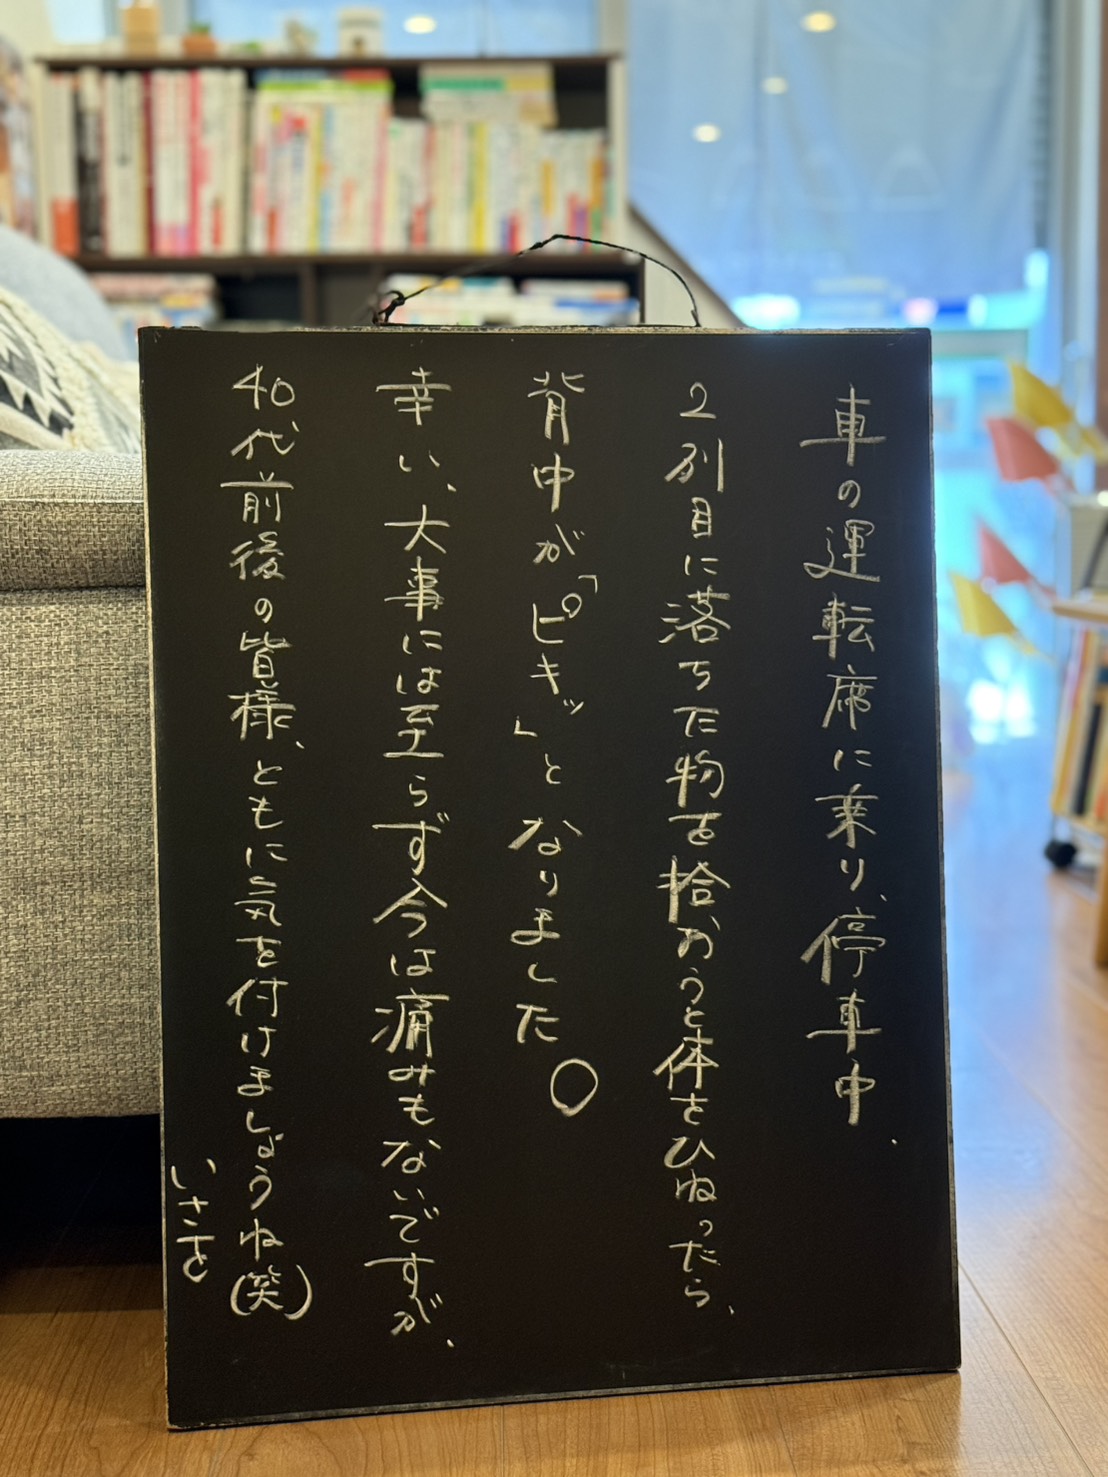 車の運転席に乗り、停車中、
2列目に落ちた物を拾おうと体をひねったら、
背中が「ピキッ」となりました。
幸い、大事には至らず今は痛みもないですが、
40代前後の皆様、ともに気を付けましょうね(笑)
いさを